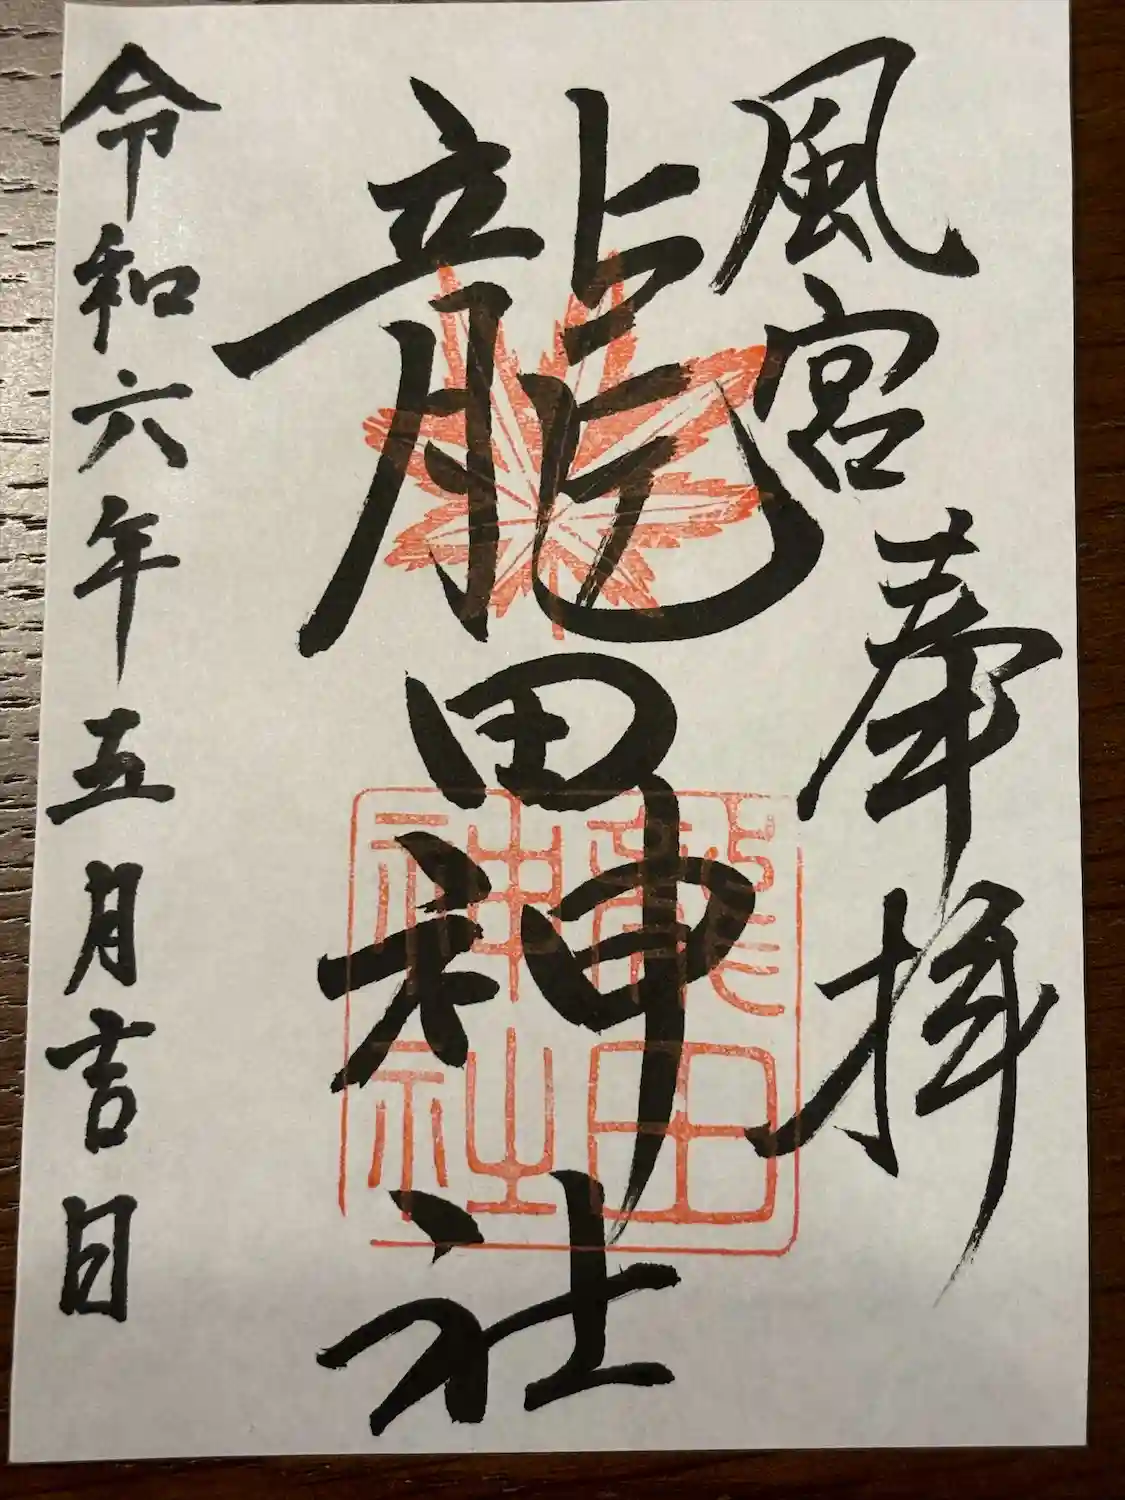 奉拝
風宮
龍田神社
龍田
神社
令和六年五月吉日